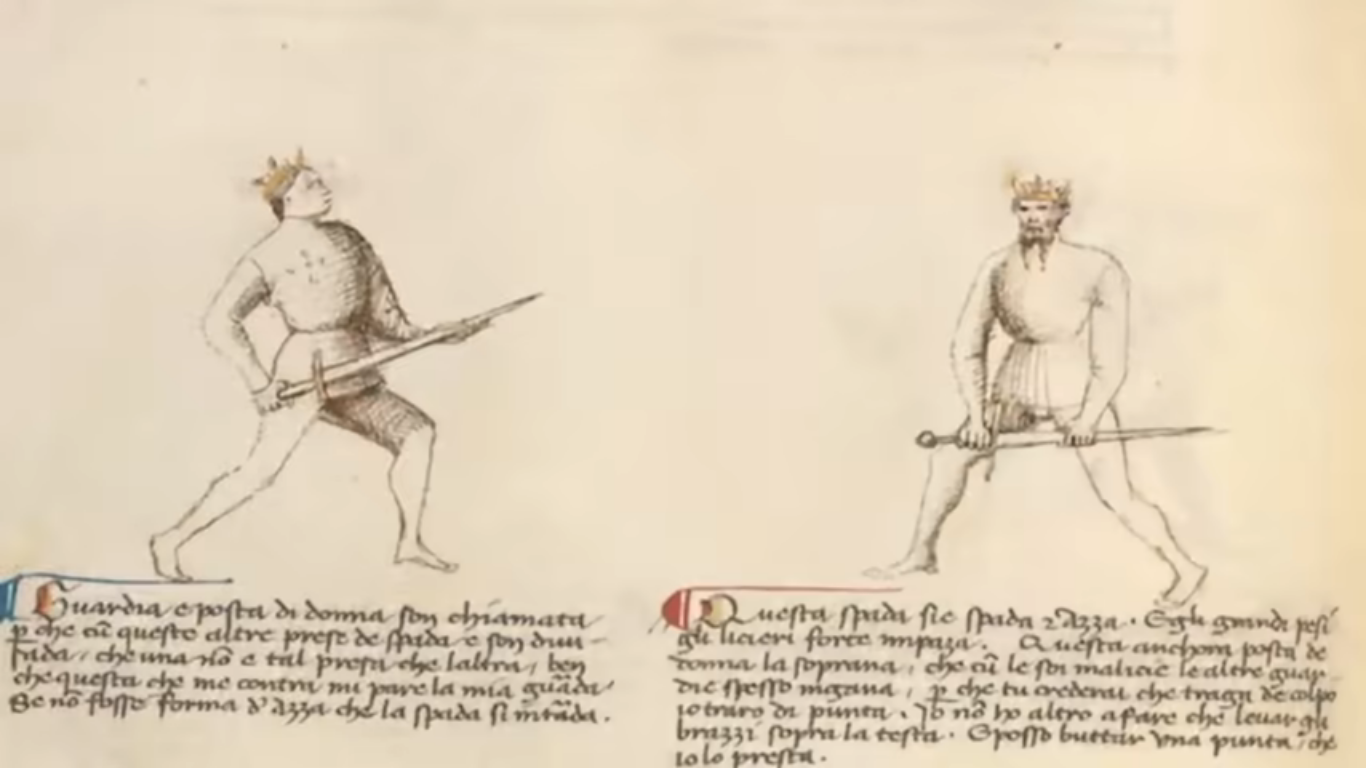 Guardia e posta di donna son chiamata
p che cũ queste altre prese de spada e son divi-
sada, che una nõ e tal presa che laltra, ben
che questa che me contra mi pare la mia guãda
Se nõ fosse forma d'Azza che la spada si intẽda.
Questa spada sie spada e Azza. Egli grandi pesi
gli licieri forte impaza. Questa anchora posta de
donna la soprana, che cũ le soi malicie le altre guar-
die spesso ingana, p che tu crederai che tragu de colpo
io traro di punta. Io nõ ho altro a fare che levar gli
brazzi sopra la testa. E posso buttar una punta, che
io lo presta.